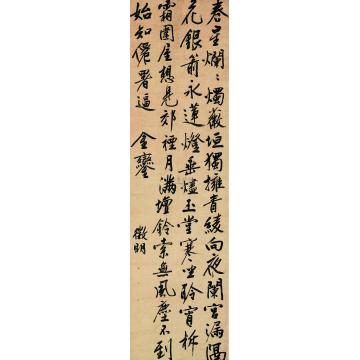 春星爛〻燭薇垣獨擁青綾向夜闌宮漏隔
花銀箭永蓮燈垂燼玉堂寒〻坐聆宵柝
霜圍屋想見郊禋月滿壇鈴索無風塵不到
始知僊署逼 金鑾
徵明